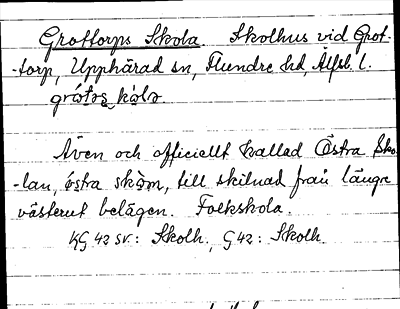 Grottorps Skola. Skolhus vid Grot-
-torp, Upphärad sn, Flundre hd, Älfsb. l.

Även och officiellt kallad Östra Sko-
-lan, östra skọ̀m, till skilnad från längre
västerut belägen. Folkskola.
KG 42 sv: Skolh., G 42: Skolh.